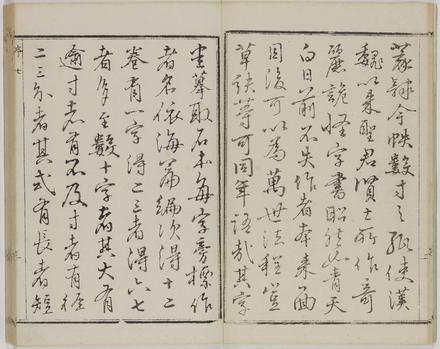 篆隷今帙數寸之紙使漢
魏以来聖君賢士所作奇
麗詭恠字書昭然如青天
白日前不失作者本来面
目後可以為萬世法程豈
草訣等可同年語哉其字
摹取石本每字旁標作
者名依海篇編次得十二
卷有一字得二三者得六七
者多至數十字者其大有
逾寸者有不及寸者有径
二三分者其式有長者短
序 七